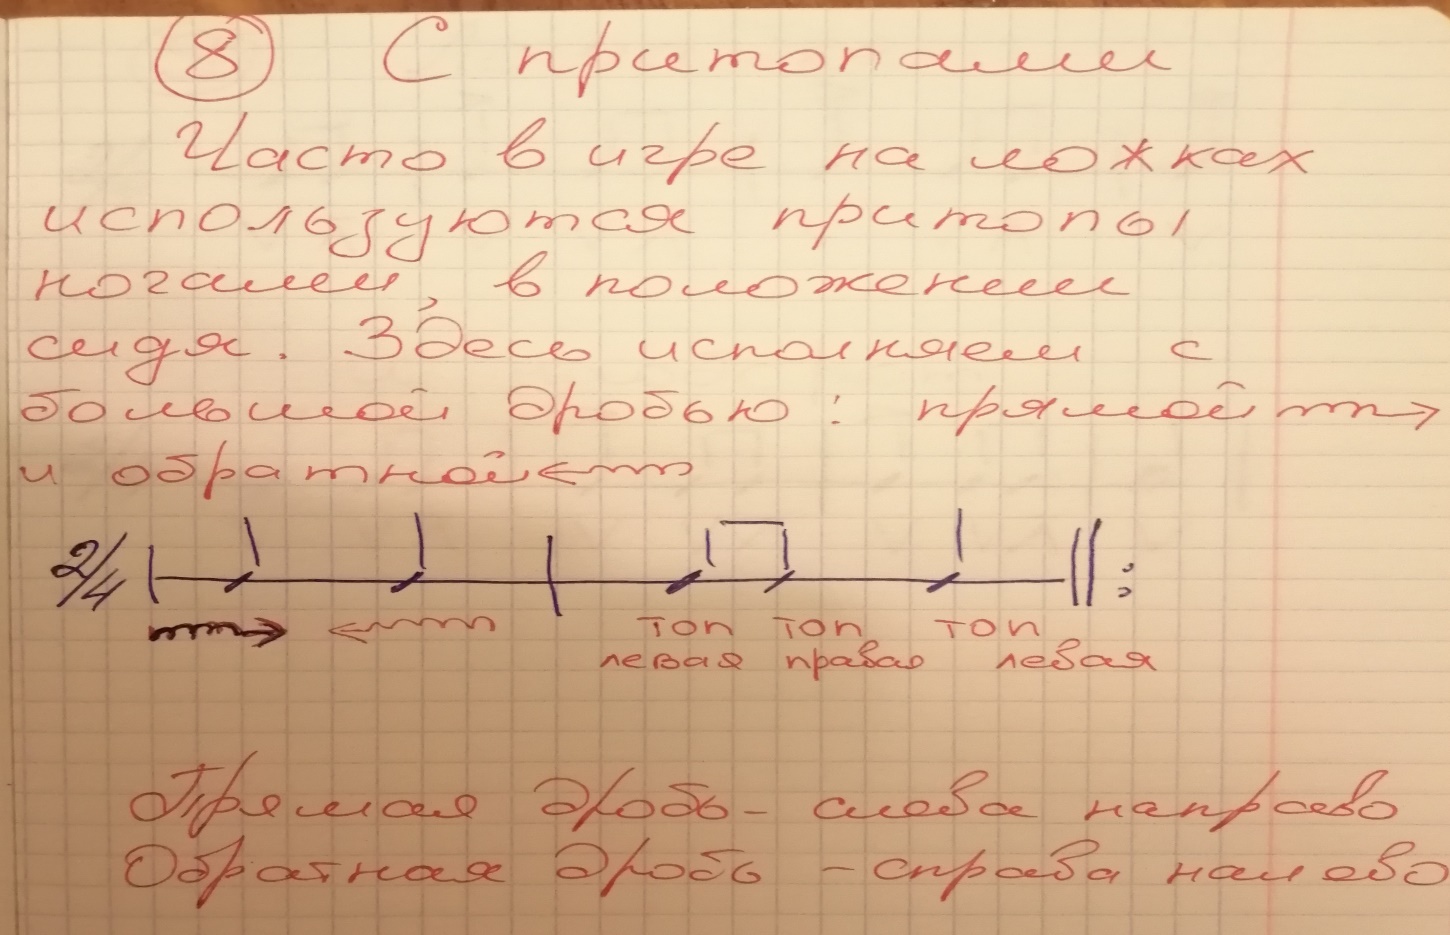 8 С притопами
Часто в игре на ложках
используются притопы
ногами, в положении
сидя. Здесь исполняем с
большой дробью: прямой
и обратной
2/4
топ топ топ
левая правая левая
Прямая дробь - слева направо
Обратная дробь - справа налево